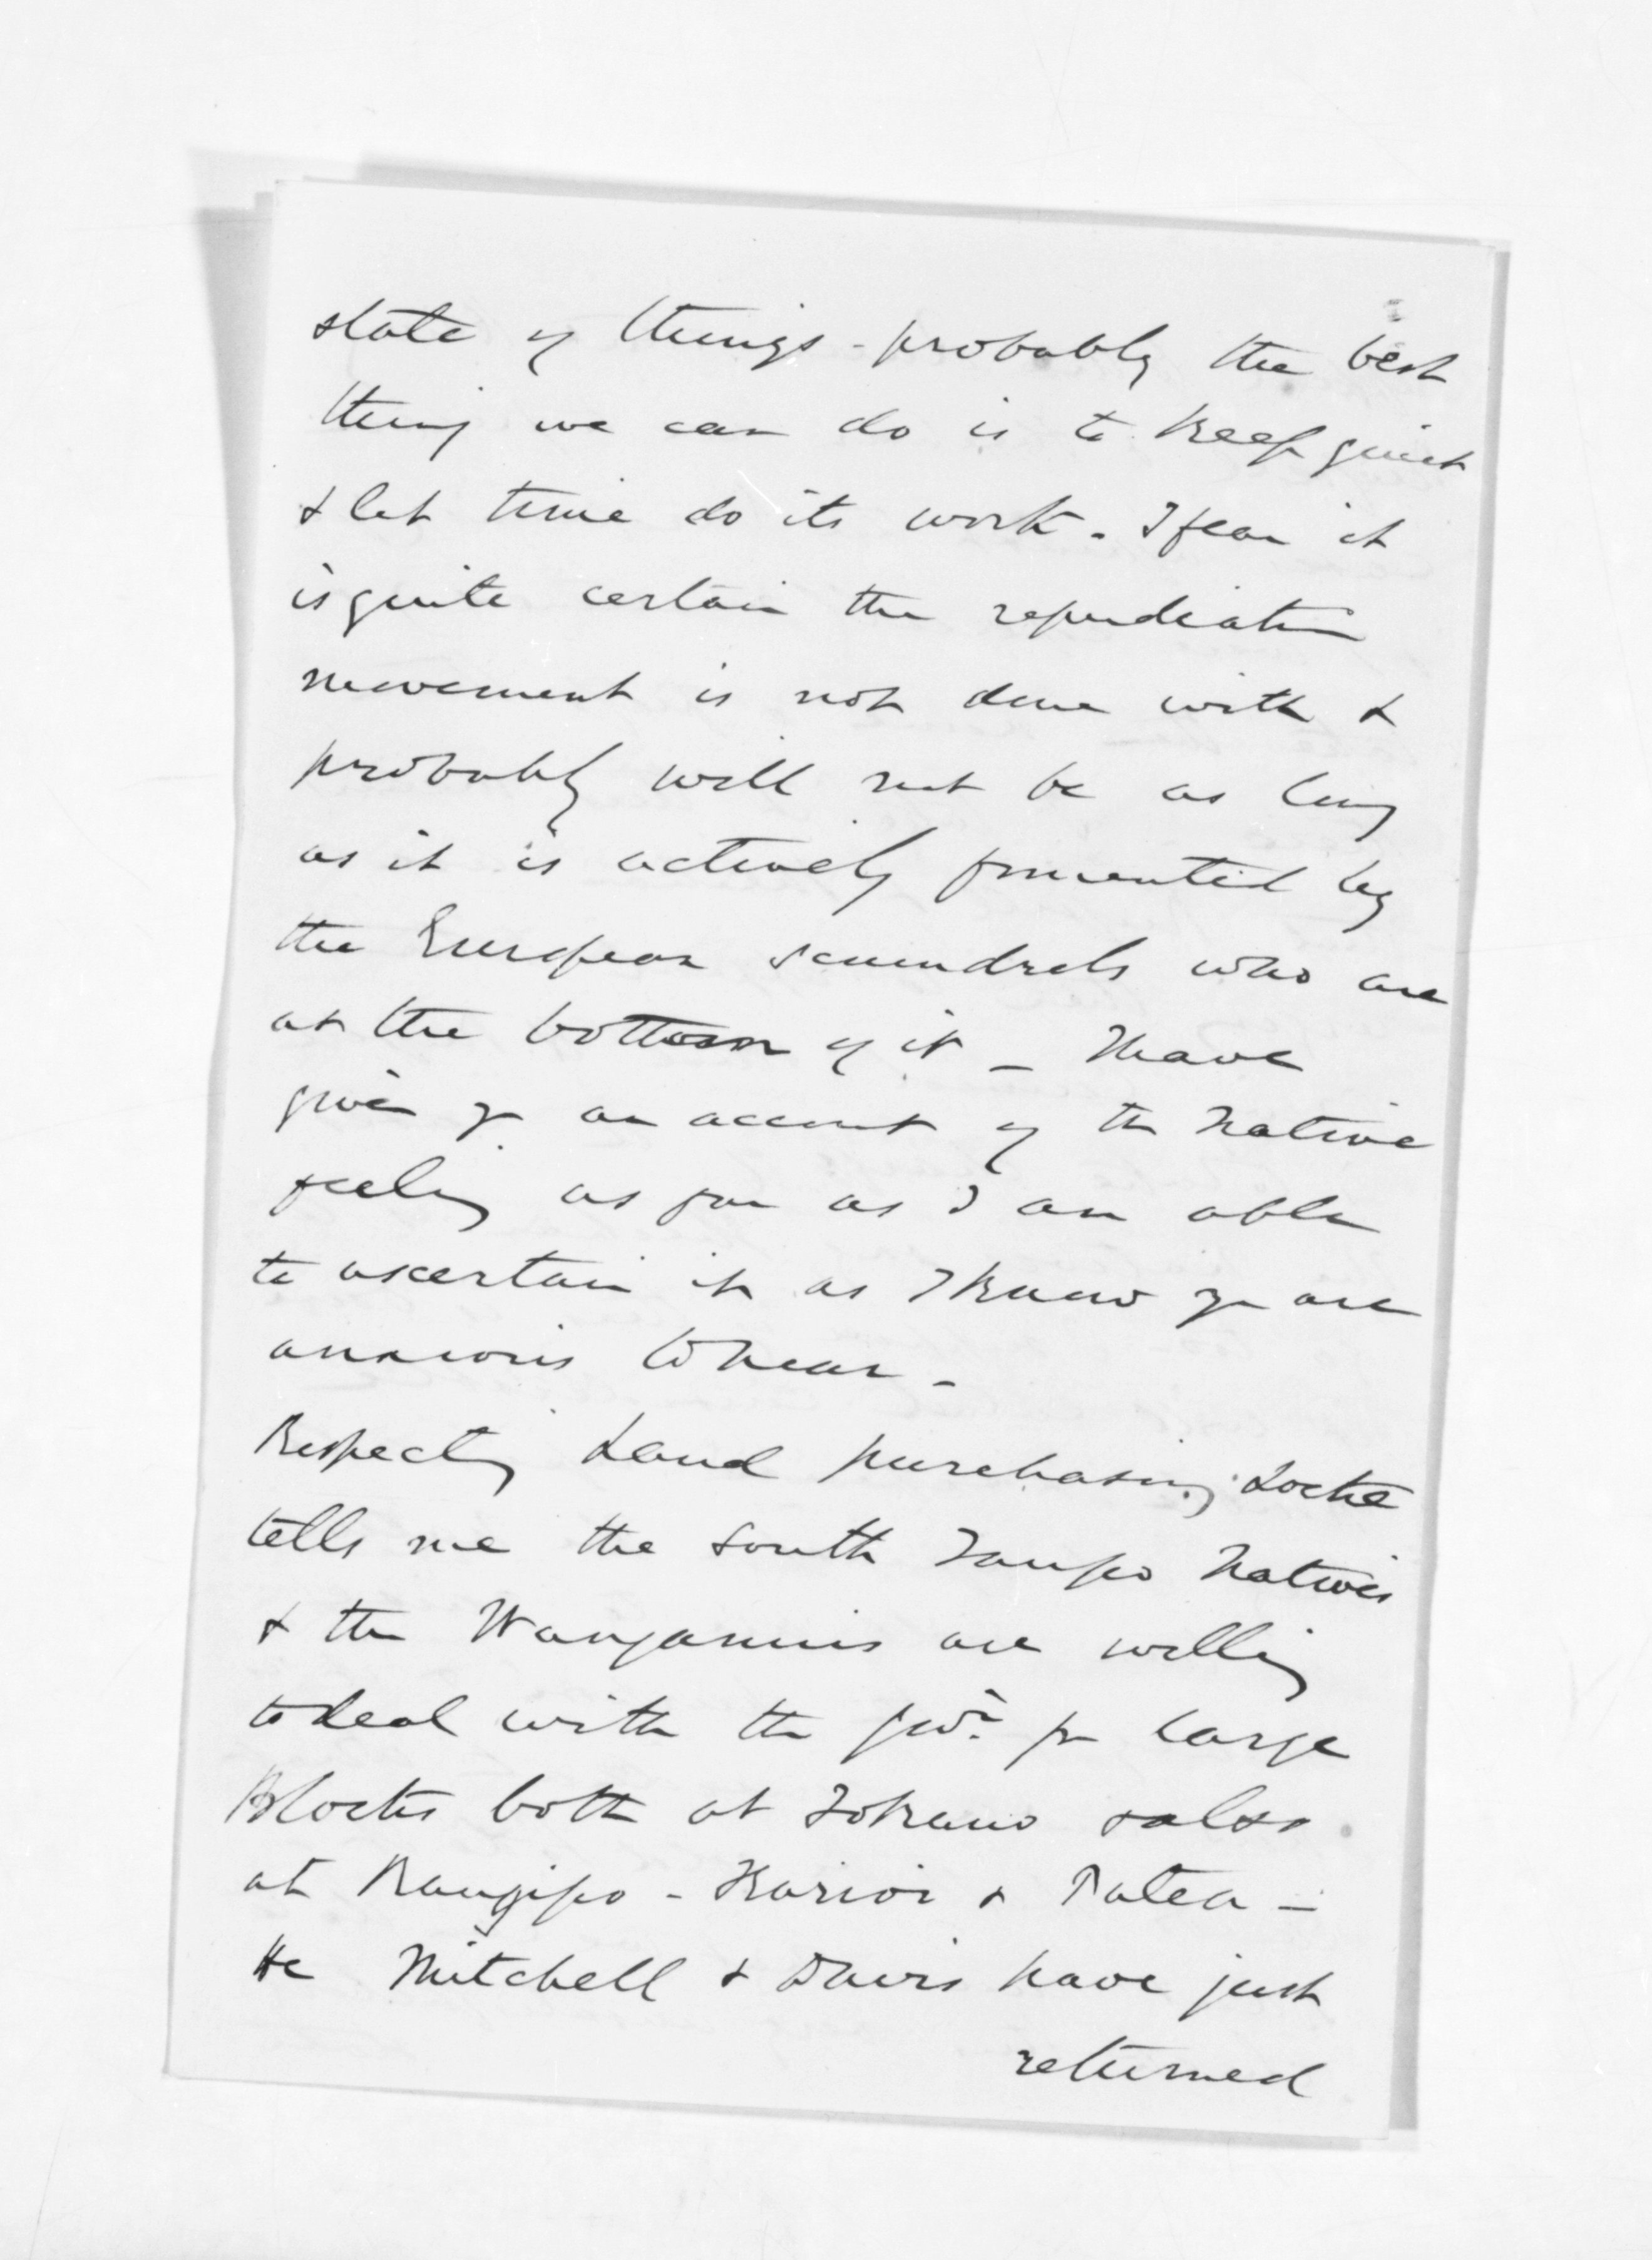 state of things - probably the best
thing we can do is to keep quiet
& let time do its work. I fear it
is quite certain the repudiation
movement is not done with &
probably will not be as long
as it is actively fomented by
the European scoundrels who are
at the bottom of it - I have
given you an account of the Native
feeling as far as I am able
to ascertain it as I know you are
anxious to hear -
Respecting Land purchasing Locke
tells me the South Taupo Natives
& the Wanganuis are willing
to deal with the Govt. for large
Blocks both at Tokanu & also
at Rangipo - Karioi & Patea -
He Mitchell & Davis have just
returned